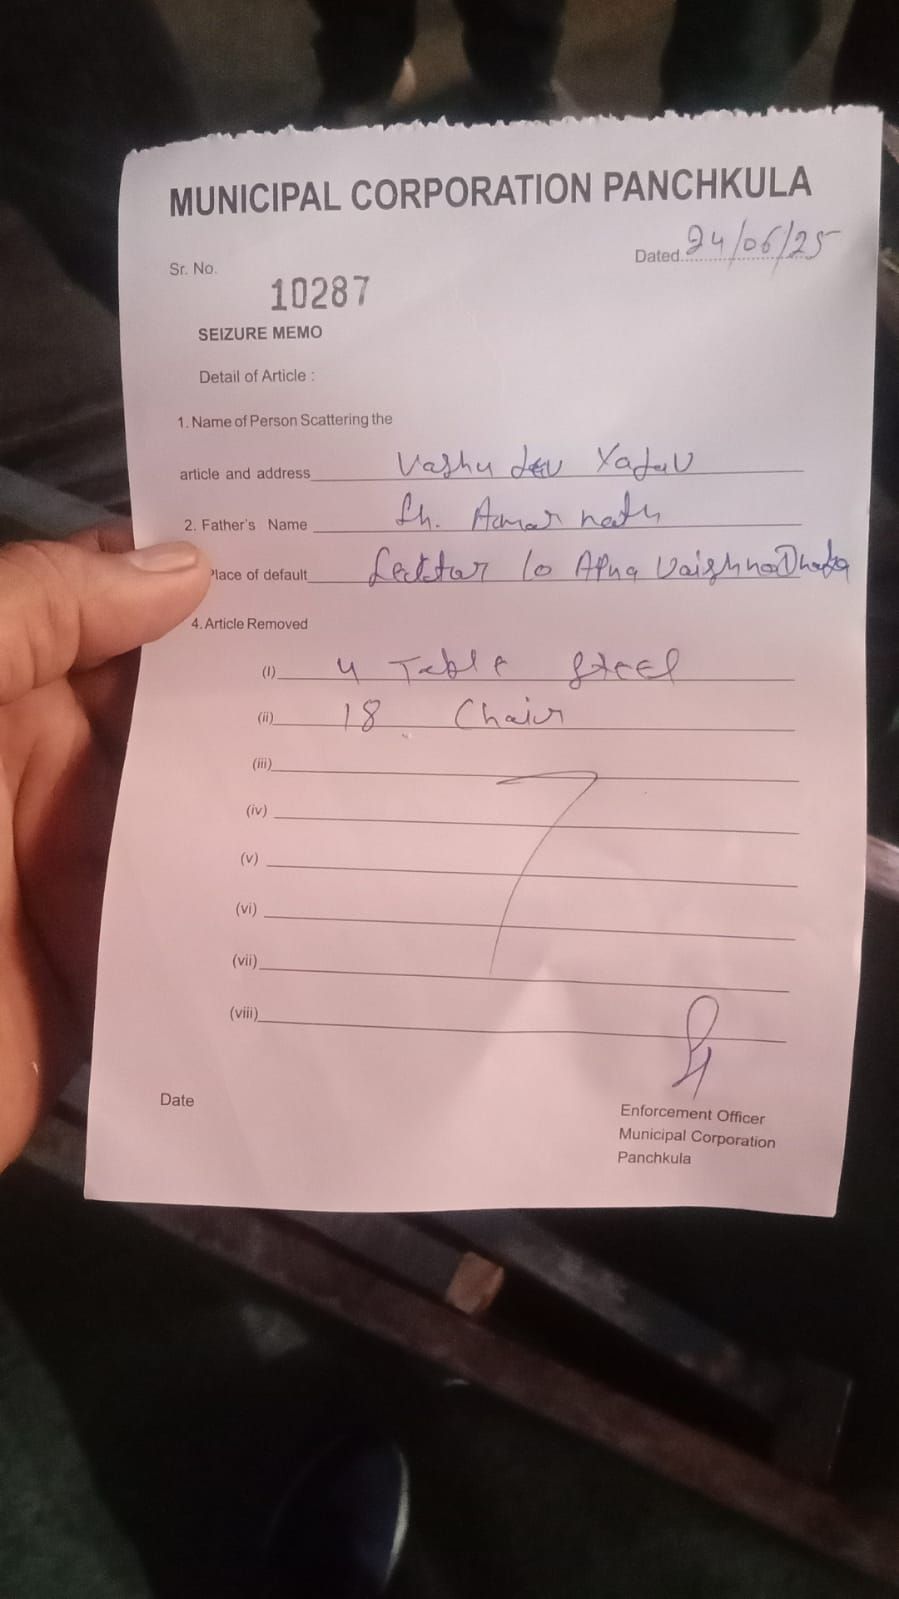 MUNICIPAL CORPORATION PANCHKULA
Sr. No. Dated 24/06/25
10287
SEIZURE MEMO
Detail of Article :
1. Name of Person Scattering the
article and address Vashu dev Yadav
2. Father's Name Sh. Amar nath
Place of default Secttor 10 Apna Vaishno Dhaba
4. Article Removed
(I) 4 Table Steel
(ii) 18 Chair
(iii)
(iv)
(v)
(vi)
(vii)
(viii)
Date
Enforcement Officer
Municipal Corporation
Panchkula